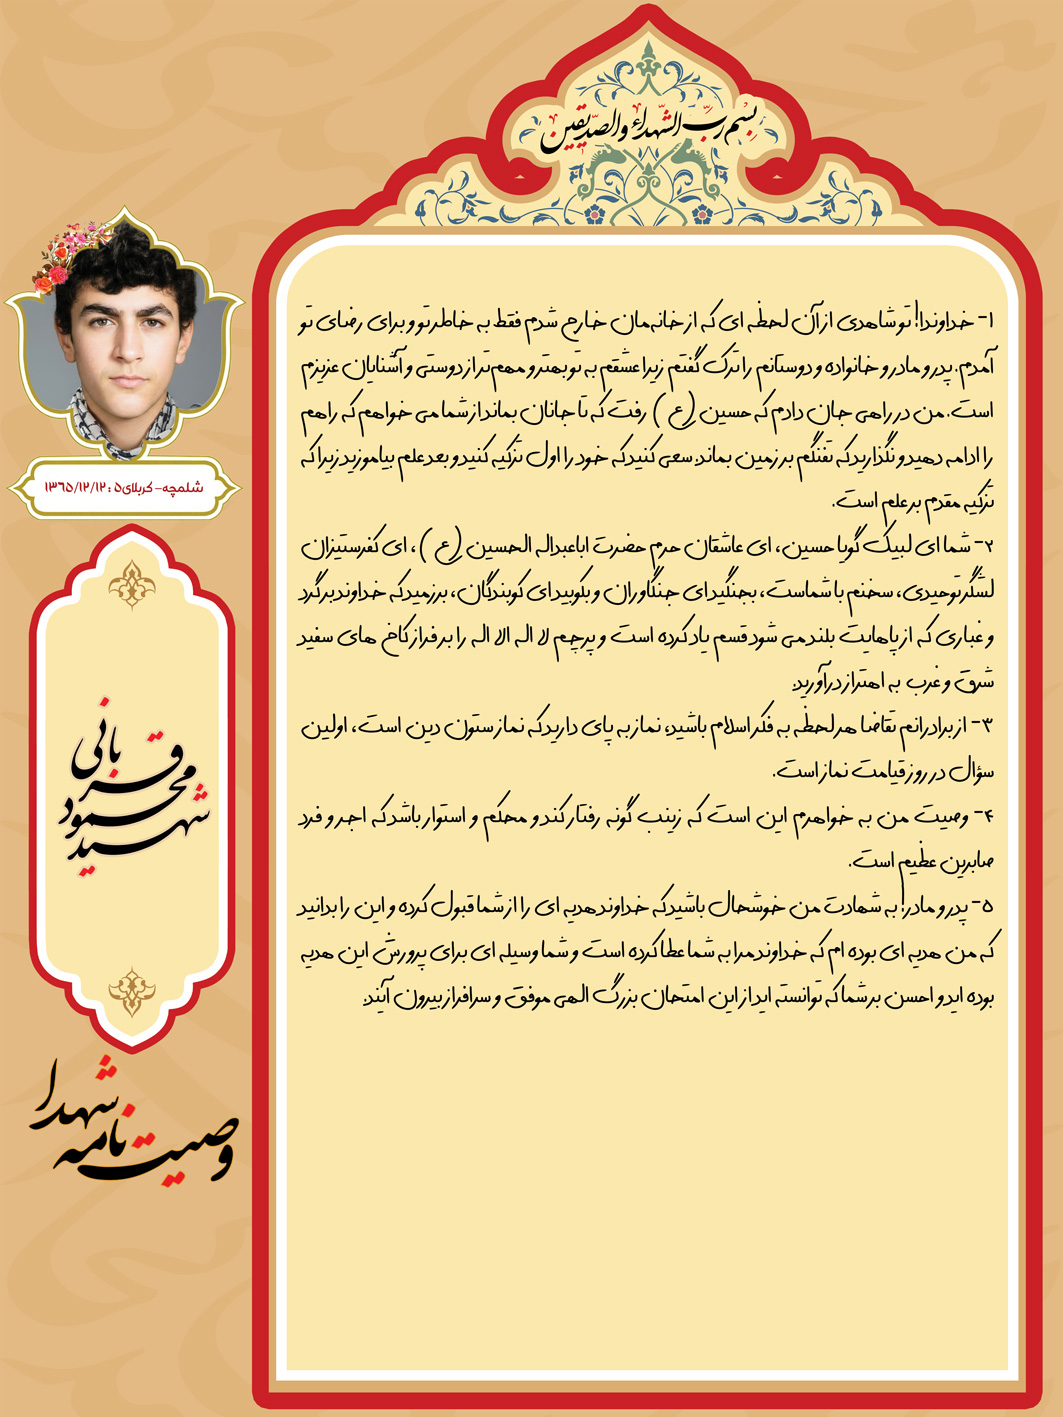 بسم رب الشهداء والصدیقین
۱- خداوندا! تو شاهدی از آن لحظه ای که از خانه‌مان خارج شدم فقط به خاطر تو و برای رضای تو
آمدم. پدر و مادر و خانواده و دوستانم را ترک گفتم زیرا عشقم به تو بهتر و مهم‌تر از دوستی و آشنایان عزیزم
است. من در راهی جان دادم که حسین (ع) رفت که تا جانان بماند از شما می خواهم که راهم
را ادامه دهید و نگذارید که تفنگم بر زمین بماند. سعی کنید که خود را اول تزکیه کنید و بعد علم بیاموزید زیرا که
تزکیه مقدم بر علم است.
۲- شما ای لبیک گویا حسین، ای عاشقان حرم حضرت اباعبداله الحسین (ع)، ای کفرستیزان
لشگر توحیدی، سخنم با شماست، بجنگید ای جنگاوران و بکوبید ای کوبندگان، برزمید که خداوند بر گرد
و غباری که از پاهایت بلند می شود قسم یاد کرده است و پرچم لا اله الا اله را بر فراز کاخ های سفید
شرق و غرب به اهتزاز درآورید.
۳- از برادرانم تقاضا هر لحظه به فکر اسلام باشید، نماز به پای دارید که نماز ستون دین است، اولین
سؤال در روز قیامت نماز است.
۴- وصیت من به خواهرم این است که زینب گونه رفتار کند و محکم و استوار باشد که اجر و فرد
صابرین عظیم است.
۵- پدر و مادر! به شهادت من خوشحال باشید که خداوند هدیه ای را از شما قبول کرده و این را بدانید
که من هدیه ای بوده ام که خداوند مرا به شما عطا کرده است و شما وسیله ای برای پرورش این هدیه
بوده اید و احسن بر شما که توانسته اید از این امتحان بزرگ الهی موفق و سرافراز بیرون آئید.
شلمچه- کربلای۵ :۱۳۶۵/۱۲/۱۲
شهید
محمود
قربانی
وصیت نامه
شهدا